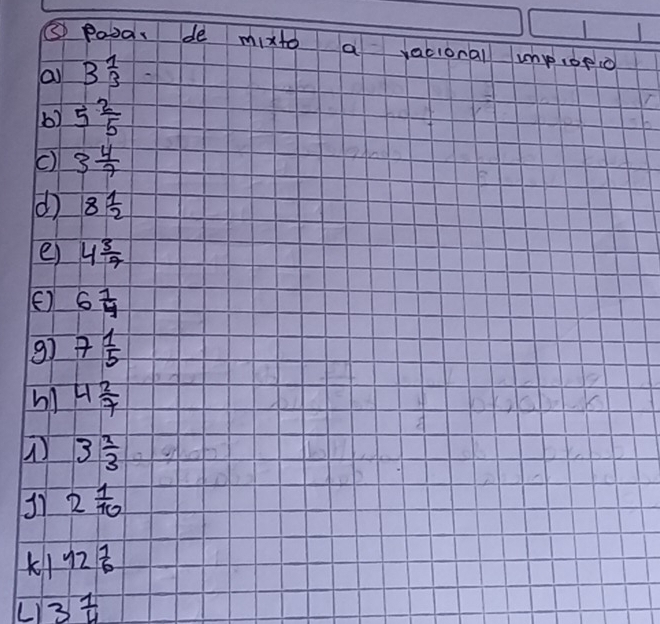 ③ Pasar de mixto a racional impropio
a) 3 1/3
b) 5 2/5
c) 3 4/7
d) 8 1/2
e) 4 3/7
f) 6 1/4
g) 7 1/5
h) 4 2/7
i) 3 2/3
j) 2 1/10
k) 12 1/6
L) 3 1/4